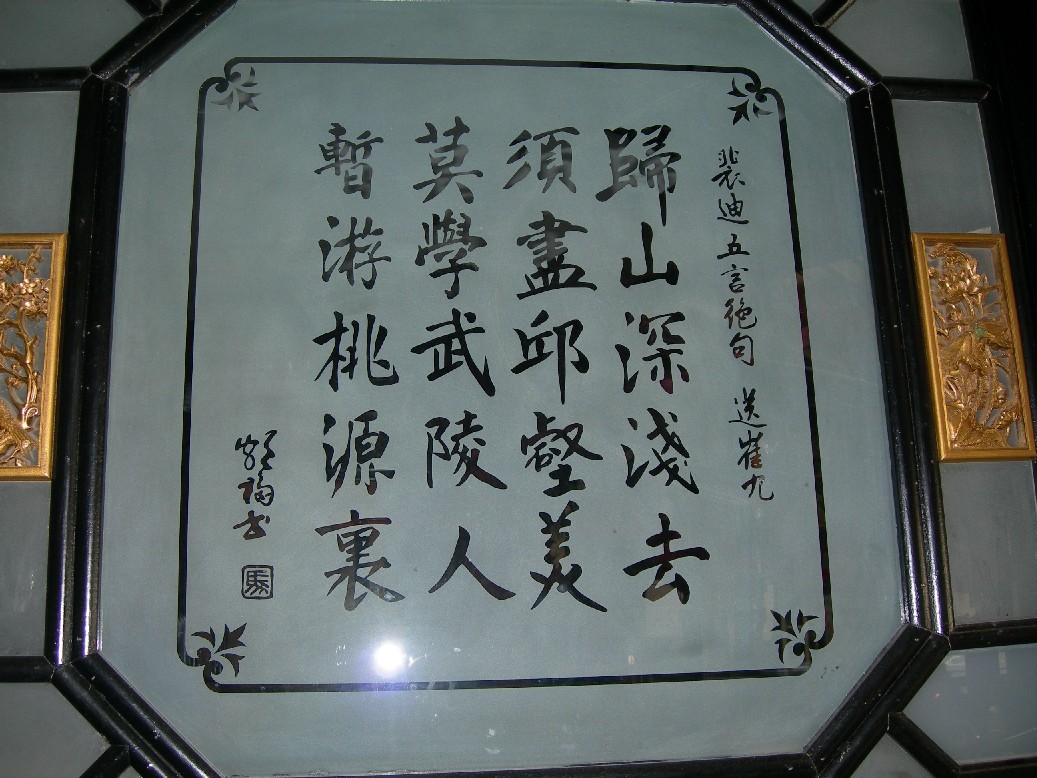 裴迪五言絕句 送崔九
歸山深淺去
須盡邱壑美
莫學武陵人
暫游桃源裏
福书
馬